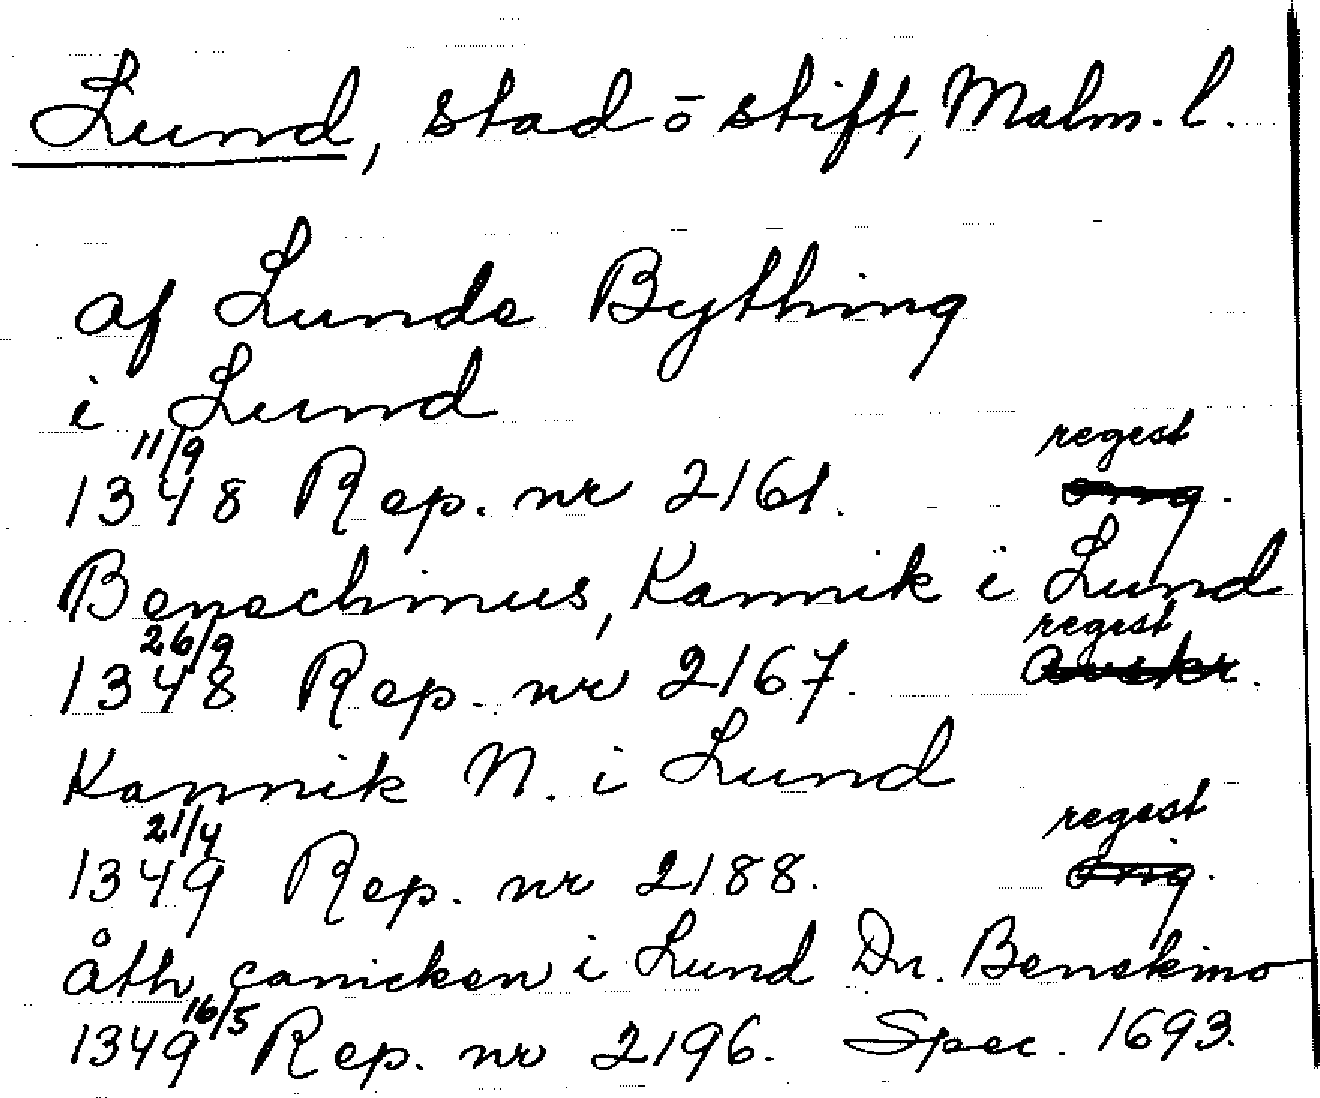 Lund, stad ō stift, Malm. l.
af Lunde Bything
i Lund
11/9 regest
1348 Rep. nr 2161. Ing.
Benechinus, Kannik i Lund
26/9 regest
1348 Rep. nr 2167. Avskr.
Kannik N. i Lund
21/4 regest
1349 Rep. nr 2188. Ing.
åth canicken i Lund Dn. Benekino
16/5
1349 Rep. nr 2196. Spec. 1693.